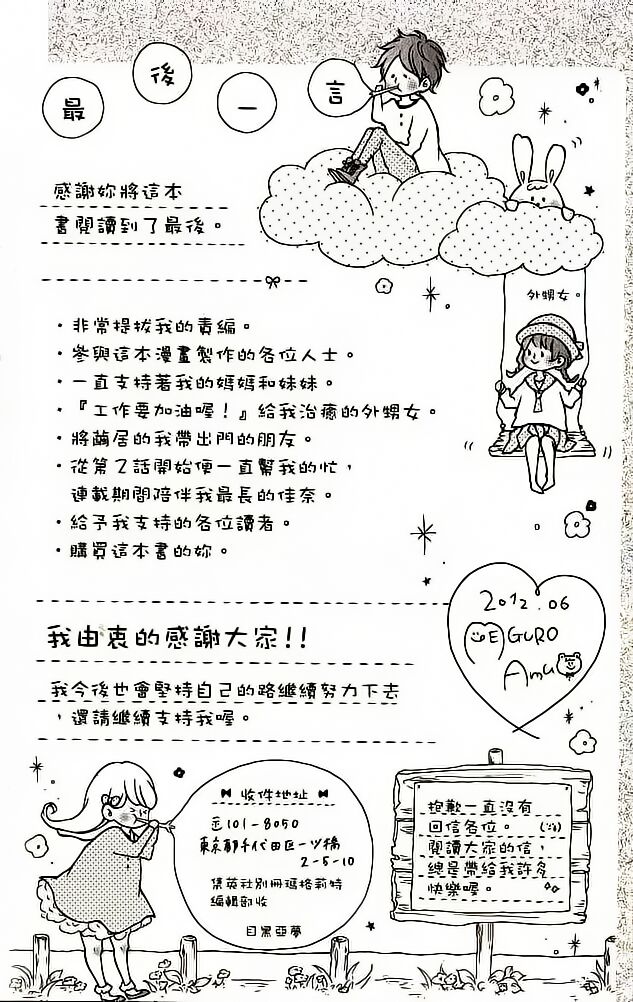 最後一言
感謝妳將這本
書閱讀到了最後。
外甥女。
・非常提拔我的責編。
・參與這本漫畫製作的各位人士。
・一直支持著我的媽媽和妹妹。
・『工作要加油喔！』給我治癒的外甥女。
・將繭居的我帶出門的朋友。
・從第2話開始便一直幫我的忙，
連載期間陪伴我最長的佳奈。
・給予我支持的各位讀者。
・購買這本書的妳。
2012.06
MEGURO
Amu
我由衷的感謝大家!!
我今後也會堅持自己的路繼續努力下去
，還請繼續支持我喔。
收件地址
〒101-8050
東京都千代田区一ツ橋
2-5-10
集英社別冊瑪格莉特
編輯部收
目黑亞夢
抱歉一直沒有
回信各位。
閱讀大家的信，
總是帶給我許多
快樂喔。